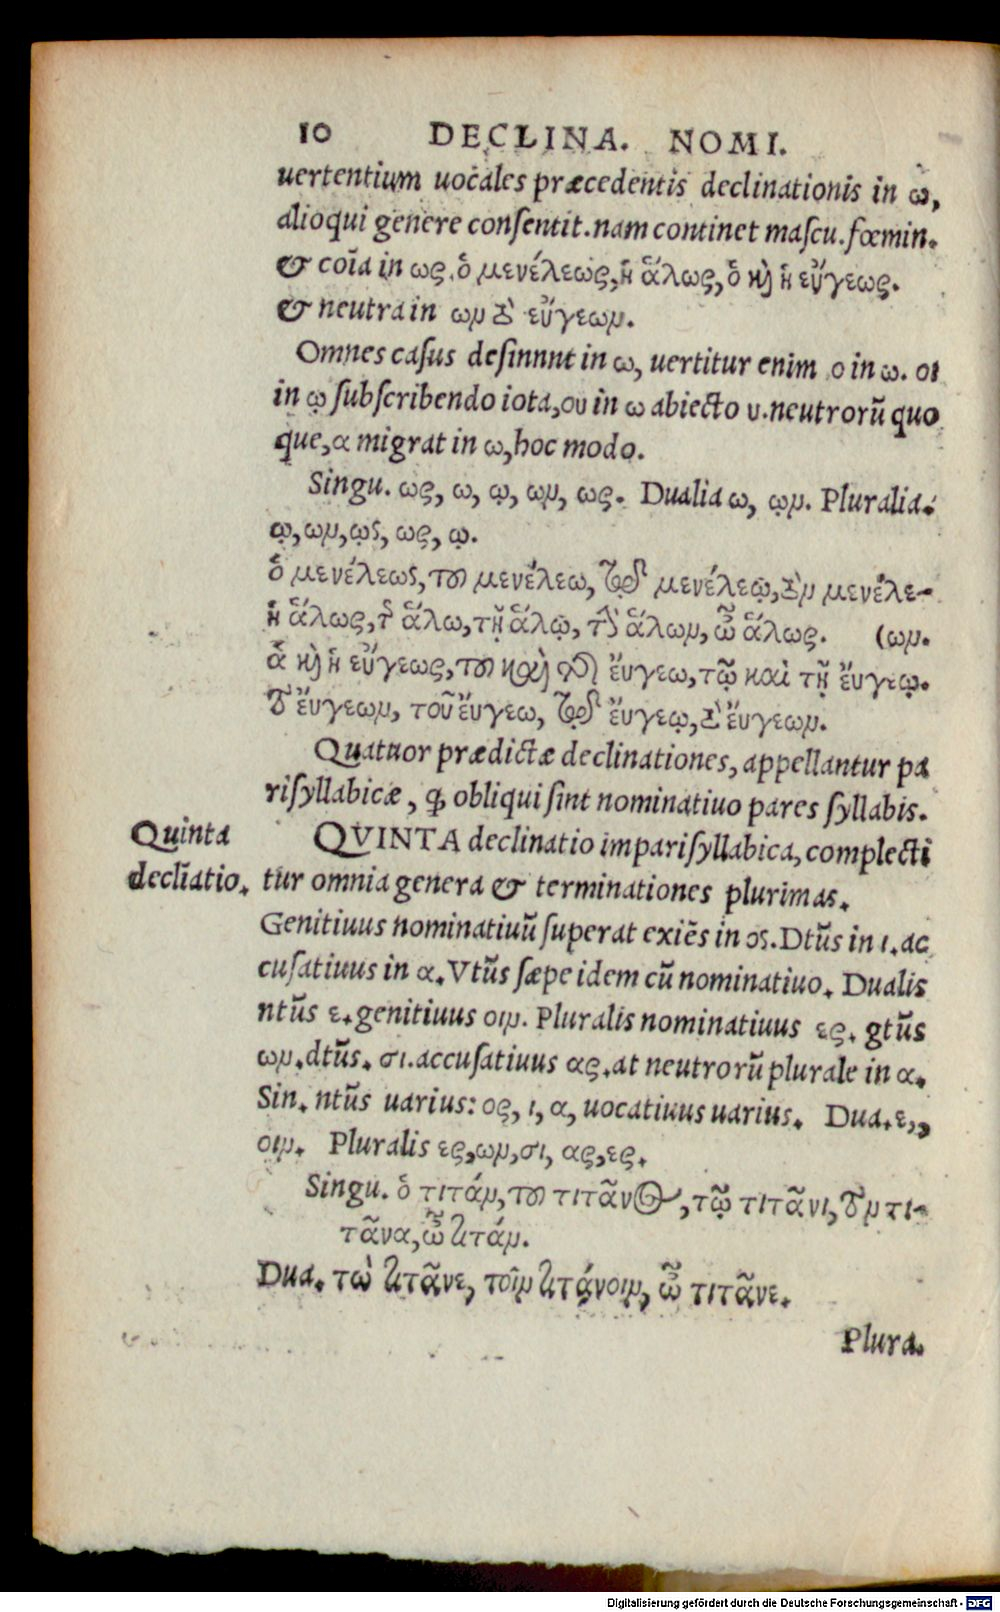 10 DECLINA. NOMI.
uertentium uocales præcedentis declinationis in ω,
alioqui genere conſentit. nam continet maſcu. fœmin.
& coĩa in ως. ὁ μενέλεως, ἡ ἅλως, ὁ κὴ ἡ εὔγεως.
& neutra in ων τὸ εὔγεων.
Omnes caſus deſinnnt in ω, uertitur enim ο in ω. οι
in ῳ ſubſcribendo iota, ου in ω abiecto υ. neutrorũ quo
que, α migrat in ω, hoc modo.
Singu. ως, ω, ῳ, ων, ως. Dualia ω, ῳν. Pluralia:
ῳ, ων, ῳς, ως, ῳ.
ὁ μενέλεως, του μενέλεω, τῷ μενέλεῳ, τὸν μενέλε-
ἡ ἅλως, τῆ ἅλω, τῇ ἅλῳ, τὴν ἅλων, ὦ ἅλως. (ων.
ὁ κὴ ἡ εὔγεως, του καὶ τῆς ἔυγεω, τῷ καὶ τῇ ἔυγεῳ.
τὸ ἔυγεων, τοῦ ἔυγεω, τῷ ἔυγεῳ, τὸ ἔυγεων.
Quatuor prædictæ declinationes, appellantur pa
riſyllabicæ, ꝙ obliqui ſint nominatiuo pares ſyllabis.
Quinta
declĩatio.
QVINTA declinatio impariſyllabica, complecti
tur omnia genera & terminationes plurimas.
Genitiuus nominatiuũ ſuperat exiẽs in ος. Dtũs in ι. ac
cuſatiuus in α. Vtũs ſæpe idem cũ nominatiuo. Dualis
ntũs ε. genitiuus οιν. Pluralis nominatiuus ες. gtũs
ων. dtũs. σι. accuſatiuus ας. at neutrorũ plurale in α.
Sin. ntũs uarius: ος, ι, α, uocatiuus uarius. Dua. ε,,
οιν. Pluralis ες, ων, σι, ας, ες.
Singu. ὁ τιτάν, του τιτᾶνος, τῷ τιτᾶνι, τὸν τι-
τᾶνα, ὦ τιτάν.
Dua. τὼ τιτᾶνε, τοῖν τιτάνοιν, ὦ τιτᾶνε.
Plura.
Digitalisierung gefördert durch die Deutsche Forschungsgemeinschaft - DFG